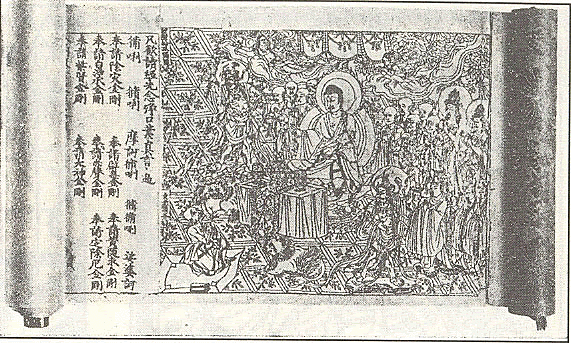 凡欲讀經先念淨口業真言一遍
脩唎 脩唎 摩訶脩唎 脩脩唎 娑婆訶
奉請除灾金剛 奉請辟毒金剛 奉請黃随求金剛
奉請白淨水金剛 奉請赤聲金剛 奉請定除厄金剛
奉請紫賢金剛 奉請大神金剛